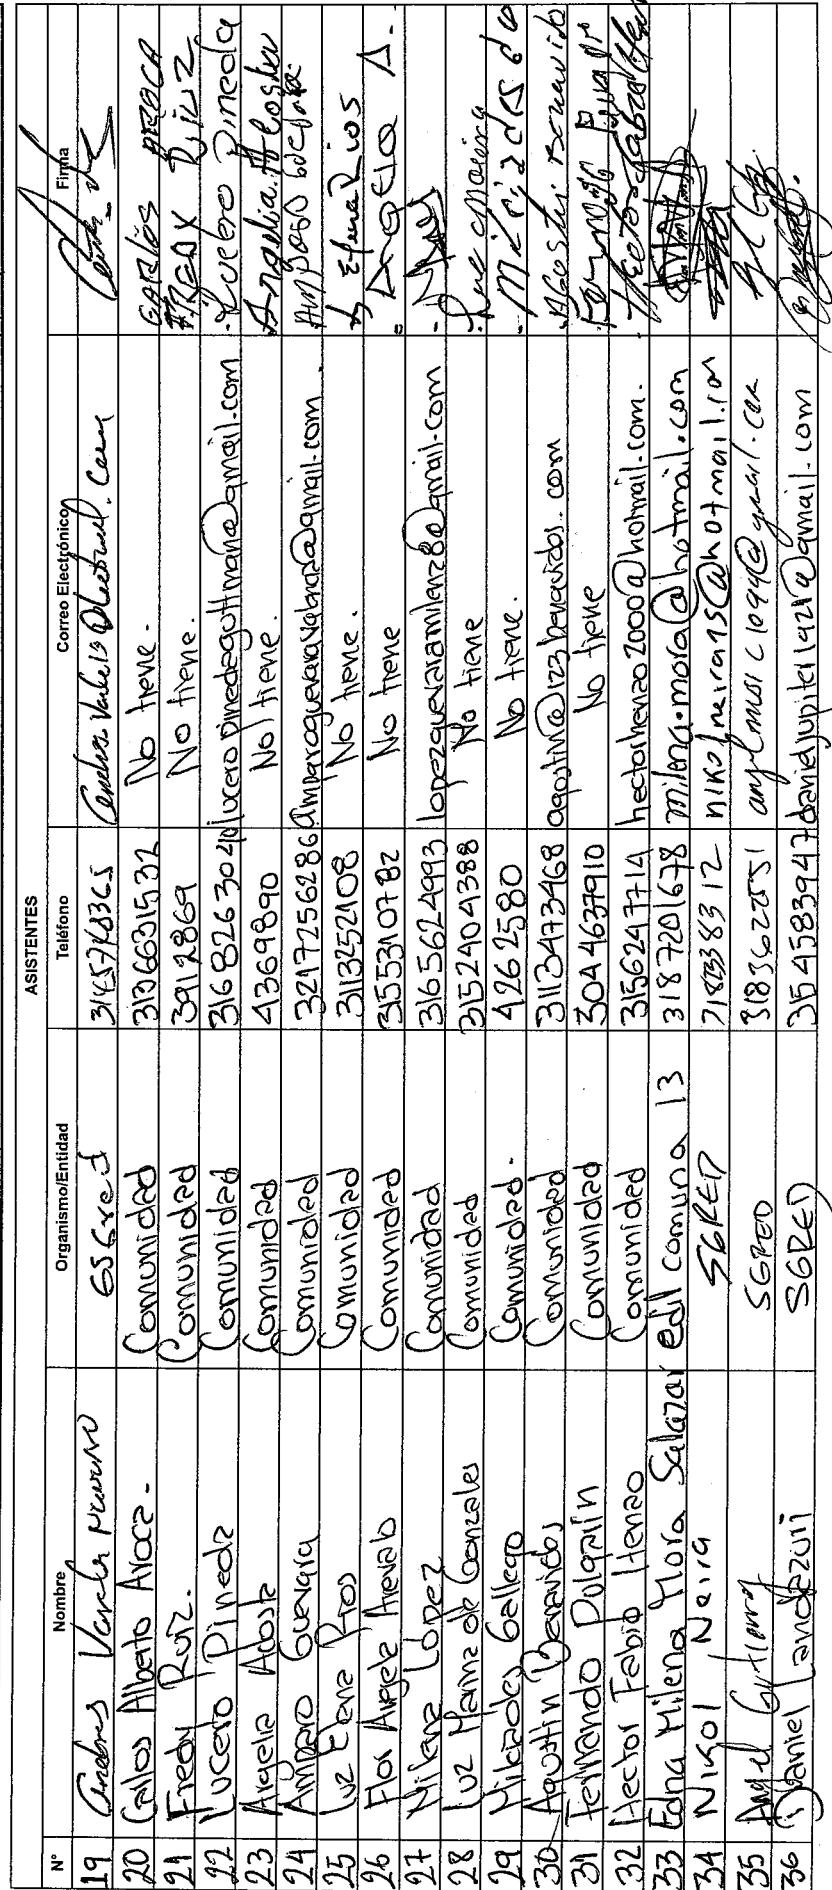 ASISTENTES
N° Nombre Organismo/Entidad Teléfono Correo Electrónico Firma
19 Andres Varela
20 Carlos Alberto Aroca. Comunidad 3136631532 No tiene. CARlos AROCA
21 Fredy Ruiz. Comunidad 3912869 No tiene. FREDY RUIZ
22 Lucero Pineda Comunidad 3168263040 luceropinedagottman@gmail.com Lucero Pineda
23 Argelia Acosta Comunidad 4369890 No tiene. Argelia Acosta
24 Amparo Guevara Comunidad 3217256286 amparoguevaravabraz@gmail.com. Amparo
25 Luz Elena Rios Comunidad 3113252108 No tiene. Elena Rios
26 Flor Angela Arevalo Comunidad 3155310782 No tiene
27 Milena Lopez Comunidad 3165624993 lopezguevaramilena28@gmail.com
28 Luz Marina de Gonzales Comunidad 3152404388 No tiene
29 Milciades Gallego Comunidad. 4262580 No tiene. Milciades
30 Agustin Benavidez Comunidad 3113473468 agostin@123benavidos.com Agustin
31 Fernando Dulgarin Comunidad 3044637910 No tiene Fernando
32 Hector Fabio Henao Comunidad 3156247714 hectorhenao2000@hotmail.com. Hector Fabio
33 Edna Milena Mora Salazar edil comuna 13 3187201678 milena.mora@hotmail.com
34 Nikol Neira SGRED nikolneira95@hotmail.com
35 Angel SGRED
36 Daniel Landazuri SGRED 354583947 danieljupiter1921@gmail.com